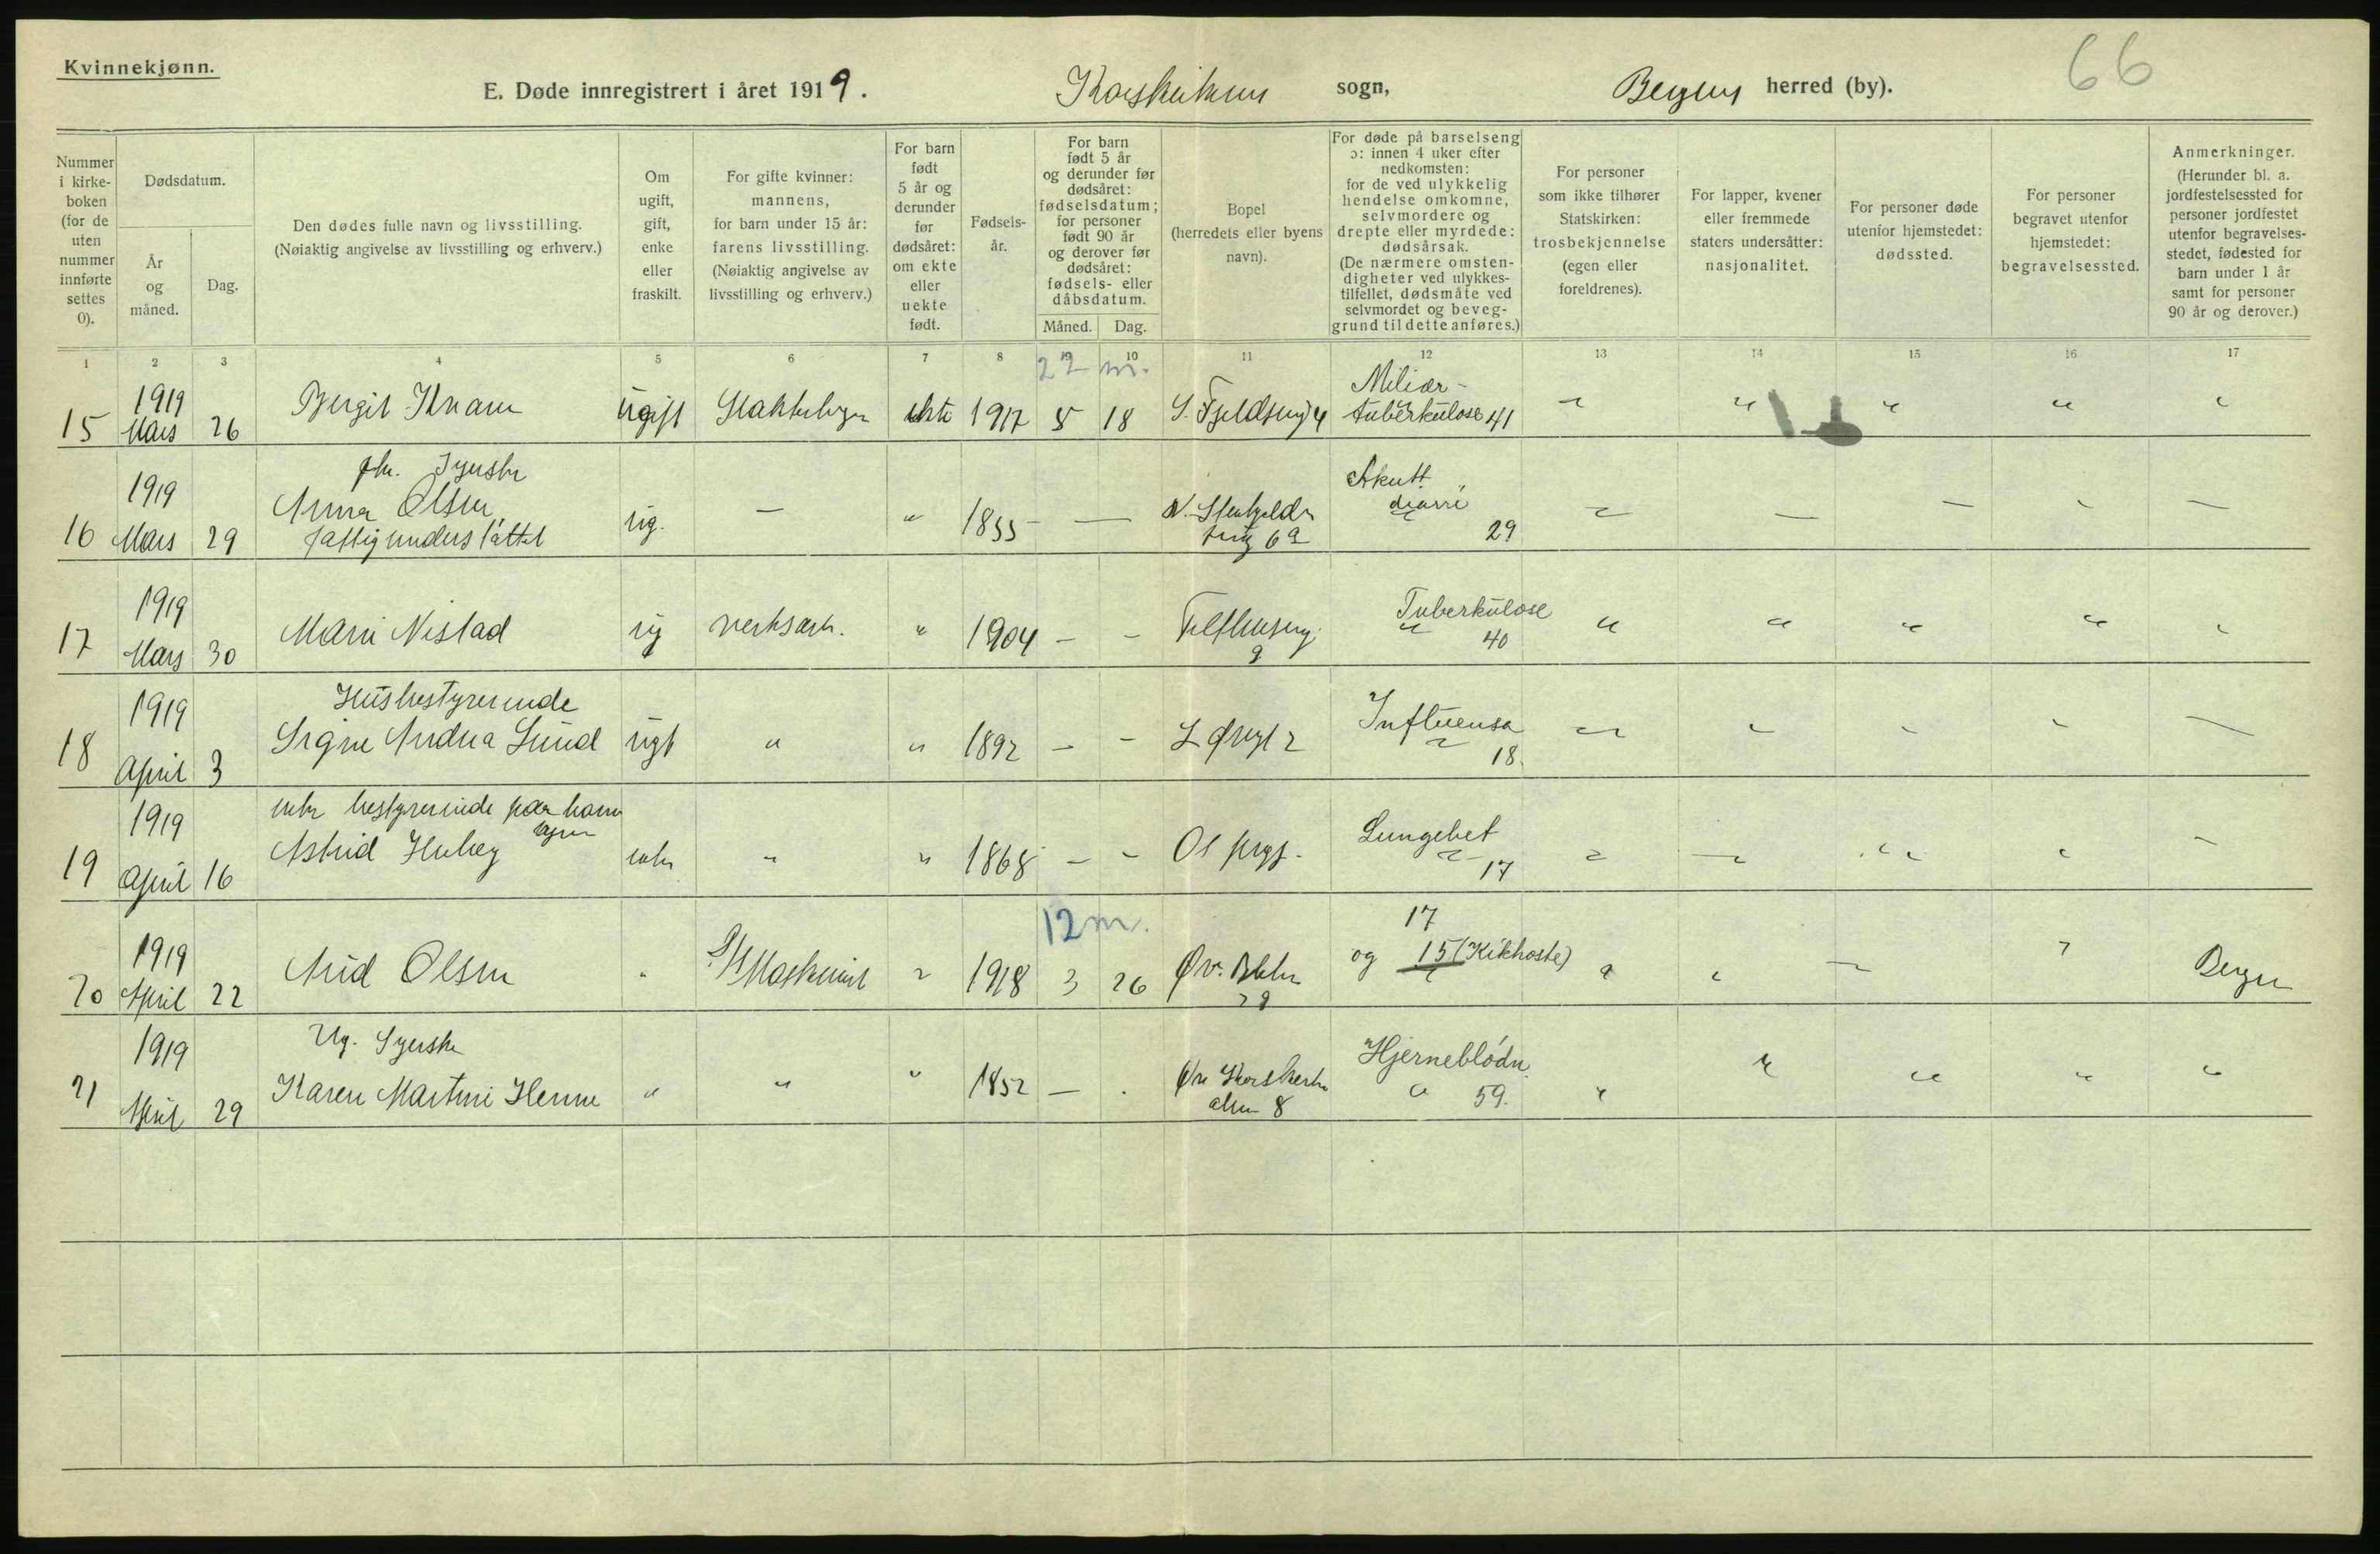 Kvinnekjønn.
66
E. Døde innregistrert i året 1919. Korskirkens sogn, Bergens herred (by).
Nummer i kirke-boken (for de uten nummer innførte settes 0).
Dødsdatum.
År og måned.
Dag.
Den dødes fulle navn og livsstilling.
(Nøiaktig angivelse av livsstilling og erhverv.)
Om ugift, gift, enke eller fraskilt.
For gifte kvinner: mannens, for barn under 15 år: farens livsstilling.
(Nøiaktig angivelse av livsstilling og erhverv.)
For barn født 5 år og derunder før dødsåret: om ekte eller uekte født.
Fødsels-år.
For barn født 5 år og derunder før dødsåret: fødselsdatum; for personer født 90 år og derover før dødsåret: fødsels- eller dåbsdatum.
Måned. Dag.
Bopel (herredets eller byens navn).
For døde på barselseng ɔ: innen 4 uker efter nedkomsten: for de ved ulykkelig hendelse omkomne, selvmordere og drepte eller myrdede: dødsårsak.
(De nærmere omsten-digheter ved ulykkes-tilfellet, dødsmåte ved selvmordet og beveg-grund til dette anføres.)
For personer som ikke tilhører Statskirken: trosbekjennelse (egen eller foreldrenes).
For lapper, kvener eller fremmede staters undersåtter: nasjonalitet.
For personer døde utenfor hjemstedet: dødssted.
For personer begravet utenfor hjemstedet: begravelsessted.
Anmerkninger.
(Herunder bl. a. jordfestelsessted for personer jordfestet utenfor begravelses-stedet, fødested for barn under 1 år samt for personer 90 år og derover.)
1 2 3 4 5 6 7 8 9 10 11 12 13 14 15 16 17
22 m.
15 1919 Mars 26 ugift ekte 1917 5 18 Miliær-tuberkulose 41
16 1919 Mars 29 Anna Olsen fattigunderstøttet ug. — " 1855 — Akutt diarré 29
17 1919 Mars 30 Marie Nistad ug verksarb. " 1904 - - 9 Tuberkulose 40
Husbestyrerinde
18 1919 April 3 Signe Andrea Lund ugt " " 1892 - - Influensa 18.
enke bestyrerinde
19 1919 April 16 Astrid enke " " 1868 - - Lungebet 17
12 m.
20 1919 April 22 Olsen " 1918 3 26 Øv. 29 17 og 15 (Kikhoste) Bergen
Ug. Syerske
21 1919 April 29 Karen Martine " " " 1852 — Øvre Korskirke alm 8 Hjerneblødn. 59.